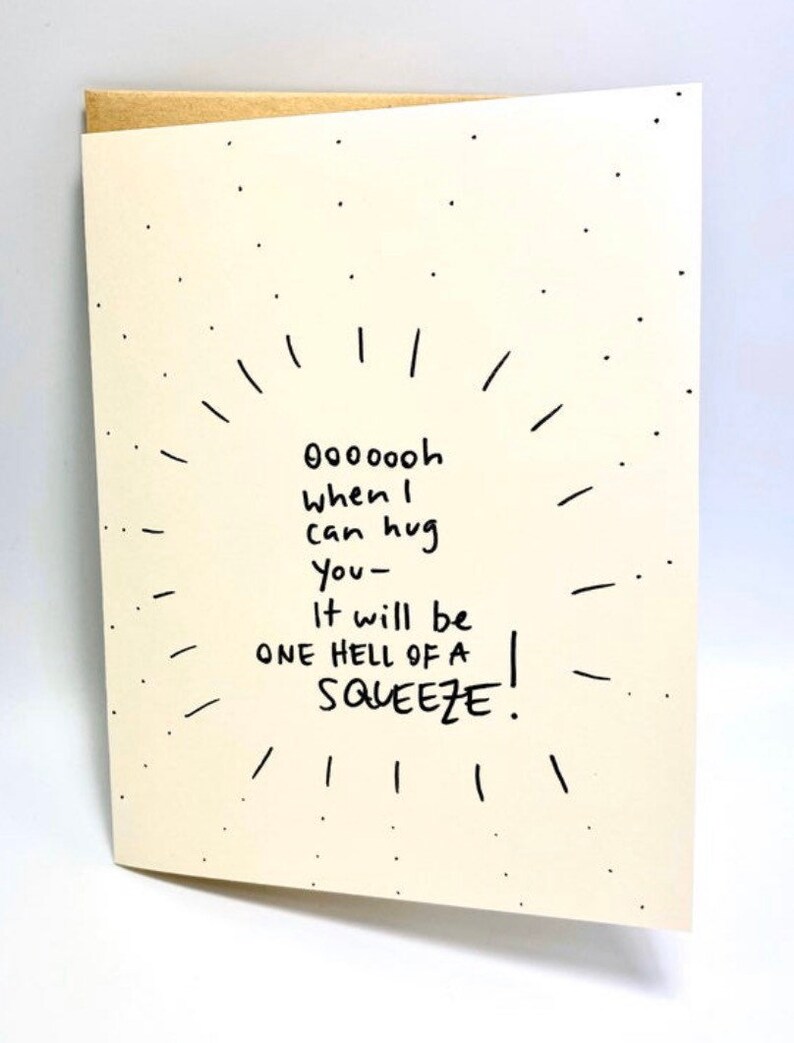 Ooooooh
when I
can hug
you—
It will be
ONE HELL OF A
SQUEEZE!